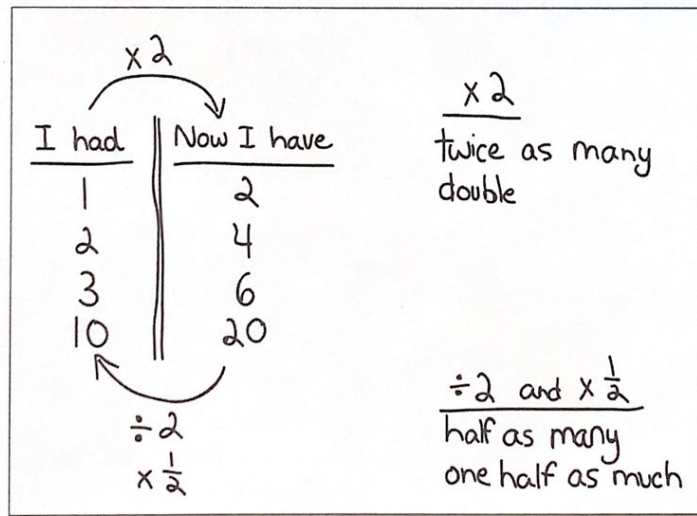 x 2
I had Now I have
1 2
2 4
3 6
10 20
÷ 2
x 1/2
x 2
twice as many
double
÷ 2 and x 1/2
half as many
one half as much